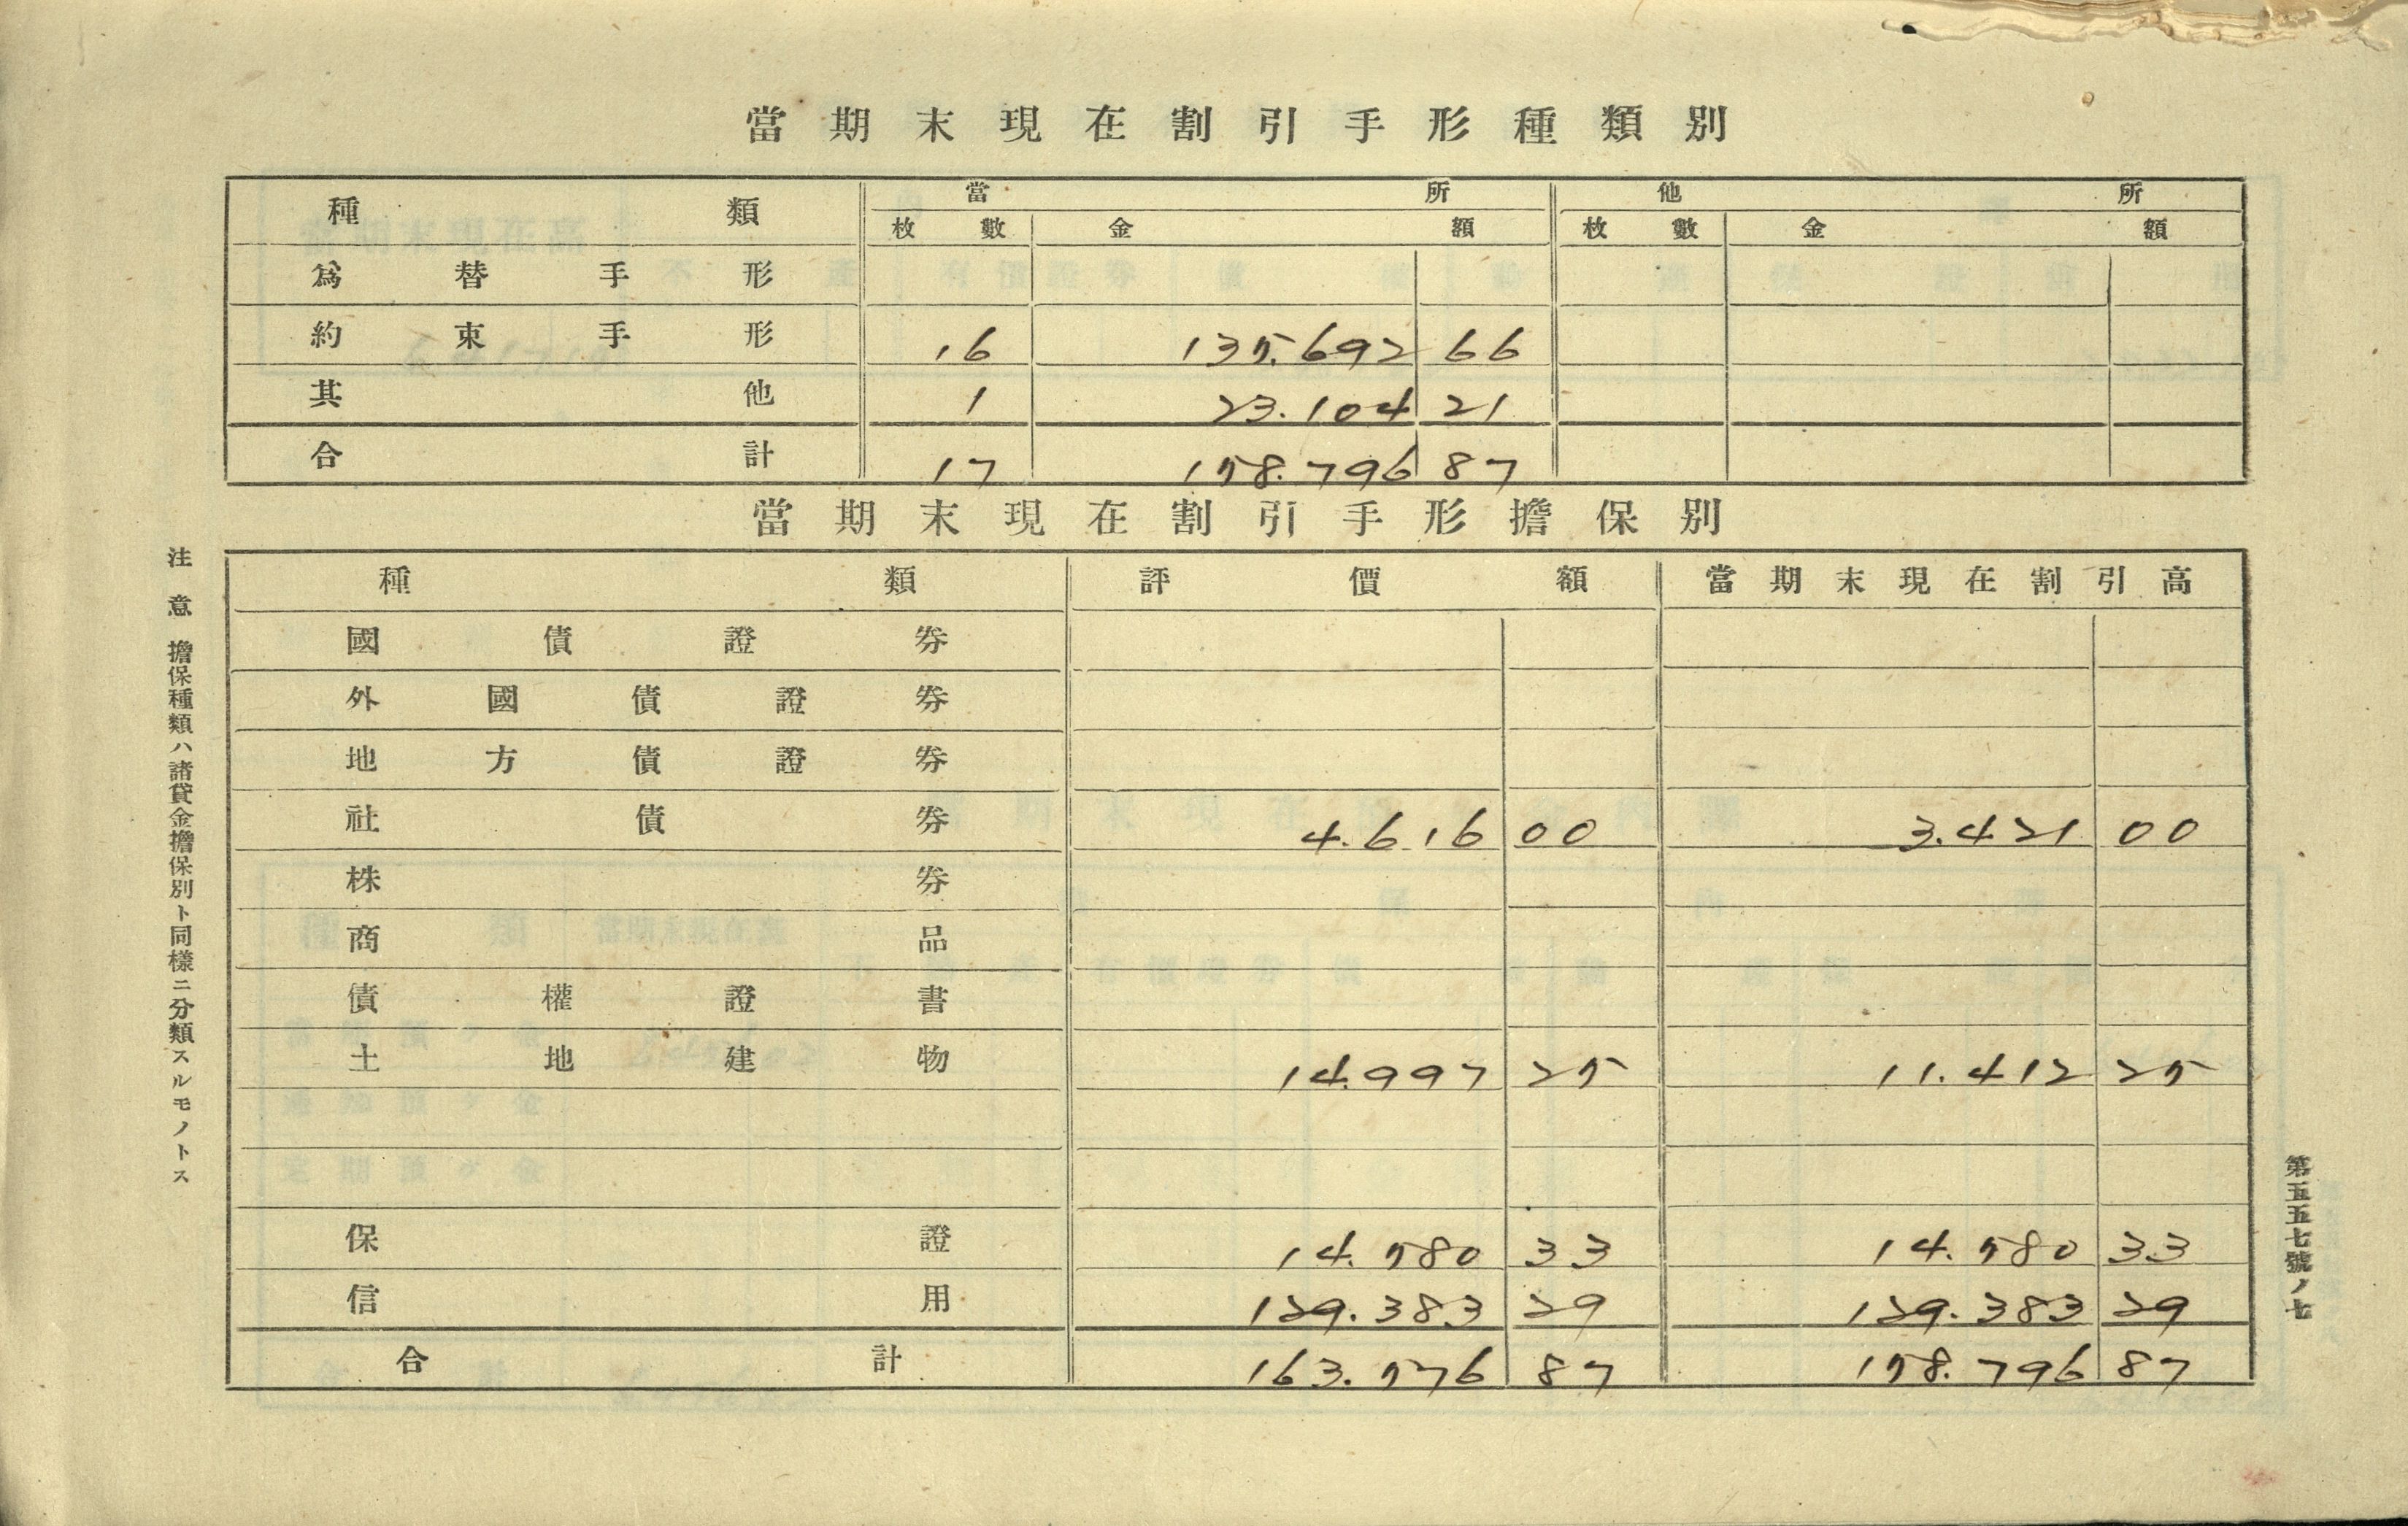 當期末現在割引手形種類別
種類 當所 他所
枚數 金額 枚數 金額
爲替手形
約束手形 16 135.692 66
其他 1 23.104 21
合計 17 158.796 87
當期末現在割引手形擔保別
種類 評價額 當期末現在割引高
國債證券
外國債證券
地方債證券
社債券 4.616 00 3.421 00
株券
商品
債權證書
土地建物 14.997 25 11.412 25
保證 14.580 33 14.580 33
信用 129.383 29 129.383 29
合計 163.576 87 158.796 87
注意 擔保種類ハ諸貸金擔保別ト同樣ニ分類スルモノトス
第五五七號ノ七